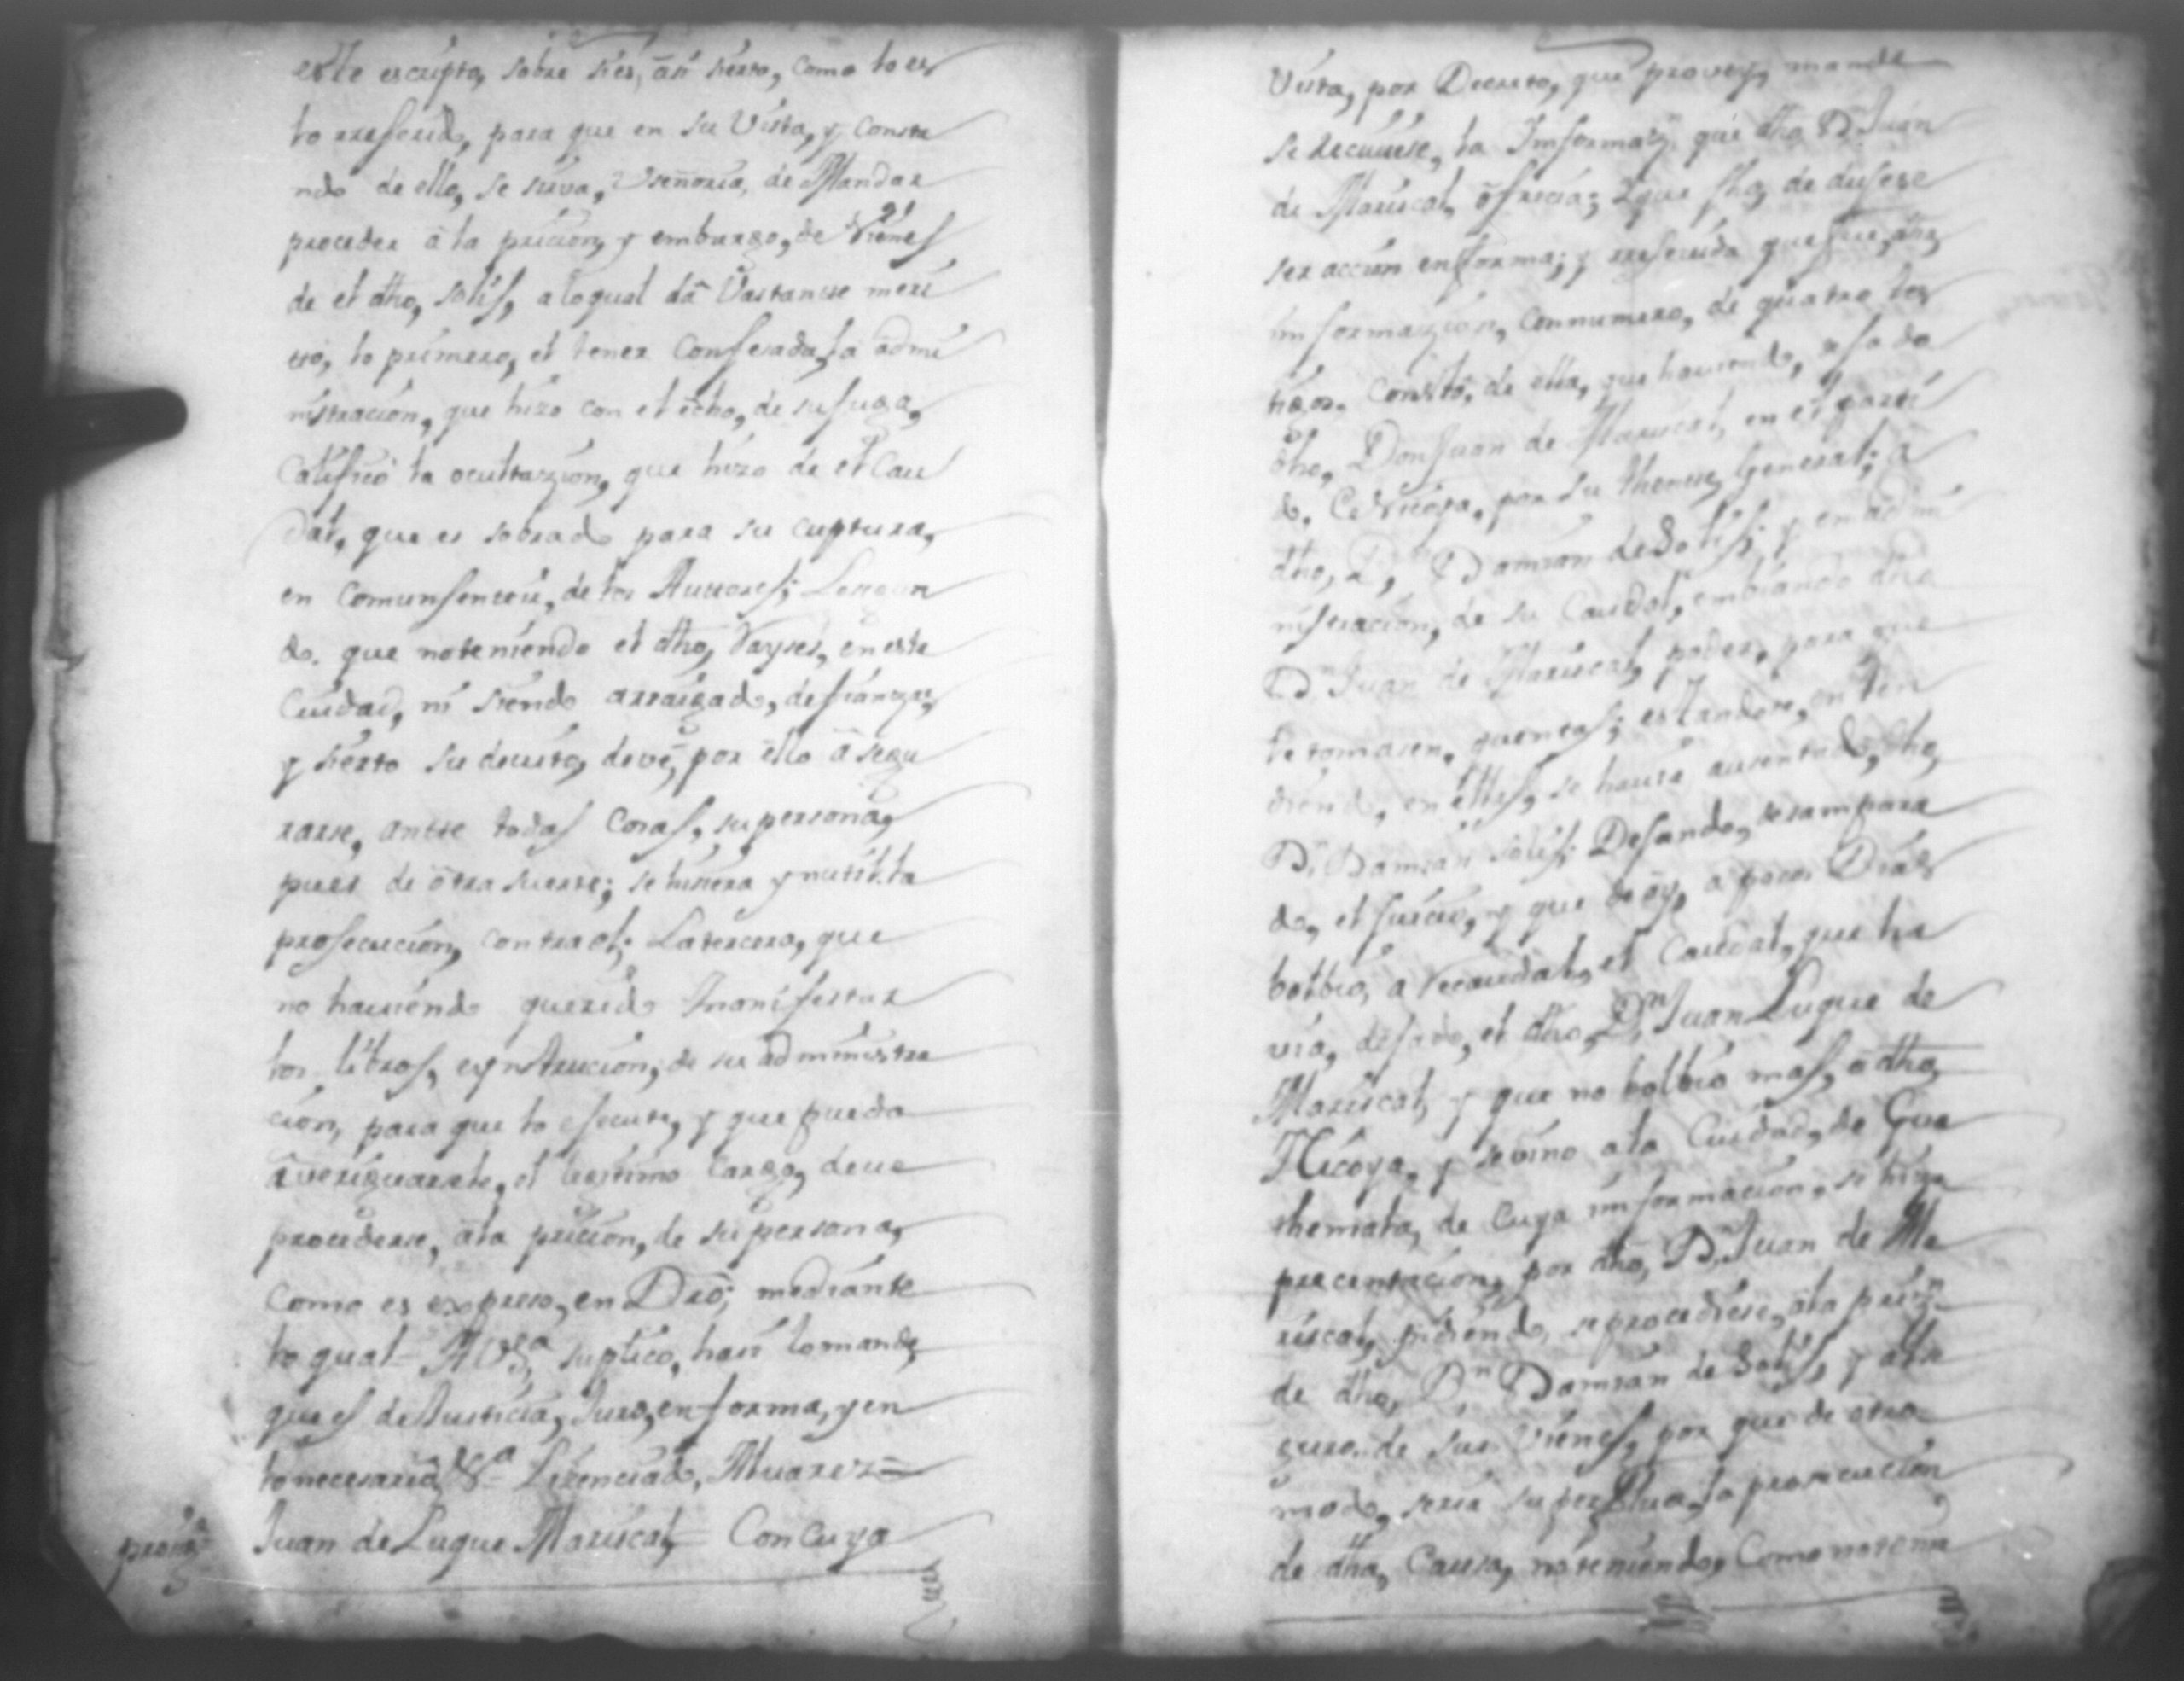 este escripto, sobre si es, asi sierto, como lo es
lo rreferido, para que en su Vista, y consta
ndo de ello, se sirva, Vseñoria, de Mandar
proceder â la pricion, y embargo, de Vienes
de el dho, solis, a lo qual dâ Vastante meri
to, lo primero, el tener Confesada, la admi
nistracion, que hizo con el echo, de su fuga,
Calificó la ocultazion, que hizo de el Cau
dal, que es sobrado para su captura,
en Comun sentir, de los Auttores; Lo segun
do, que no teniendo el dho, Vayses, en esta
Ciudad, ni siendo arraigado, de fianzas,
y sierto su devito, deve, por ello â segu
rarse, antte todas Cosas, su persona,
pues de ôtra suerte; se hisiera ynutil, la
prosecucion, contra el; La tercera, que
no haviendo querido Manifestar
los libros, e ynstrucion, de su administra
cion, para que lo esecute, y que pueda
averiguarsele, el lexitimo Cargo, deve
procederse, â la pricion, de su persona,
Como es expreso, en Dro; mediante
lo qual = A VSª suplico, hasi lo mande,
que es de Justicia, Juro, en forma, y en
lo necesario, &ª Lizenciado, Alvarez =
Juan de Luque Mariscal = Con Cuya
Vista, por Decreto, que provey, mande
se reciviese, la Informazn que dho Dn Juan
de Mariscal, ôfrecia; y que fha, de dusese
ser accion en forma; y rreferida que fue, dha,
informazion, con numero, de quatro tes
tigos, Constó, de ella, que haviendo, desado
dho, Don Juan de Mariscal, en el parti
do, de Nicoya, por su theniente General; a
dho, Dn Damian de Solis; y en admi
nistracion, de su Caudal, embiando dho
Dn Juan de Mariscal, poder, para que
le tomasen, quentas; estandose, en ten
diendo, en ellas, se havia ausentado, dho,
Dn Damian Solis; Desando, desampara
do, el juicio, y que de ay, a pocos Dias
bolbio, a recaudal, el Caudal, que ha
via, desado, el dho, Dn Juan Luque de
Mariscal, y que no bolbio mas, a dho,
Nicoya, y se vino a la Ciudad, de Gua
themala, de Cuya informacion, se hizo
precentacion, por dho, Dn Juan de Ma
riscal, pidiendo, se procediese, â la prizn
de dho, Dn Damian de Solis, y al se
guro, de sus Vienes, por que de otro
modo, seria superflua, la prosecucion
de dha, Causa, no teniendo, Como no tenia